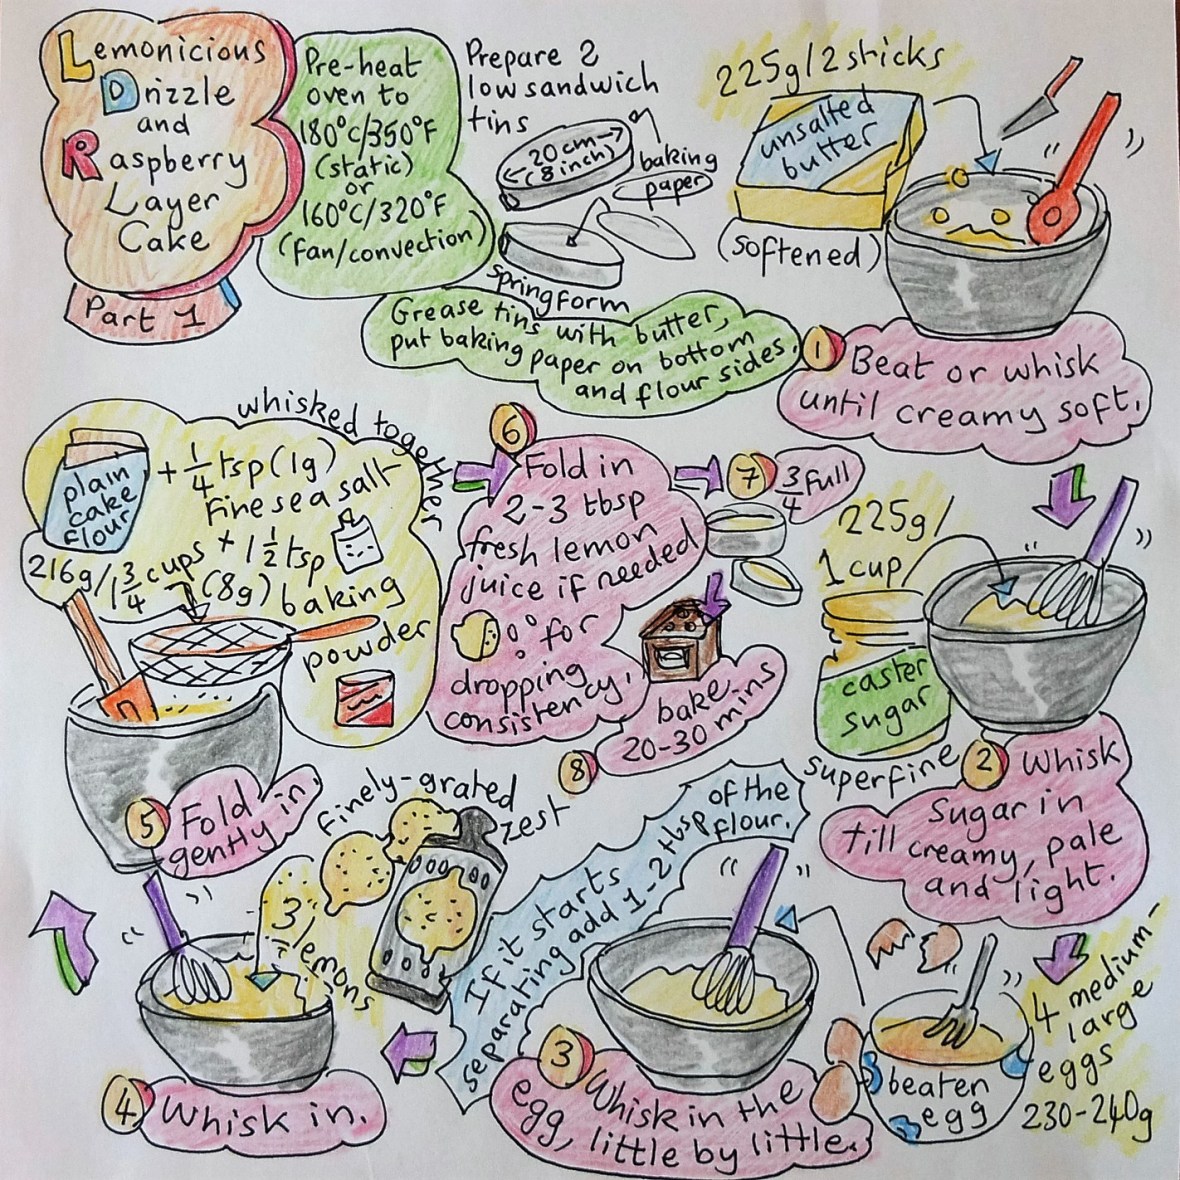 Lemonicious
Drizzle
and
Raspberry
Layer
Cake
Part 1
Pre-heat
oven to
180°C/350°F
(static)
or
160°C/320°F
(fan/convection)
Prepare 2
low sandwich
tins
20cm
(8inch)
baking
paper
springform
Grease tins with butter,
put baking paper on bottom
and flour sides.
225g/2 sticks
unsalted
butter
(softened)
1 Beat or whisk
until creamy soft.
225g/
1 cup
caster
sugar
superfine
2 Whisk
Sugar in
till creamy, pale
and light.
4 medium-
large
eggs
230-240g
beaten
egg
3 Whisk in the
egg, little by little.
If it starts
separating add 1-2 tbsp
of the
flour.
3 lemons
finely-grated
zest
4 Whisk in.
whisked together
plain
cake
flour
216g/1 3/4 cups
+ 1/4 tsp (1g)
fine sea salt
+ 1 1/2 tsp
(8g) baking
powder
5 Fold
gently in.
6
Fold in
2-3 tbsp
fresh lemon
juice if needed
for
dropping
consistency.
7 3/4 full
8 bake
20-30 mins